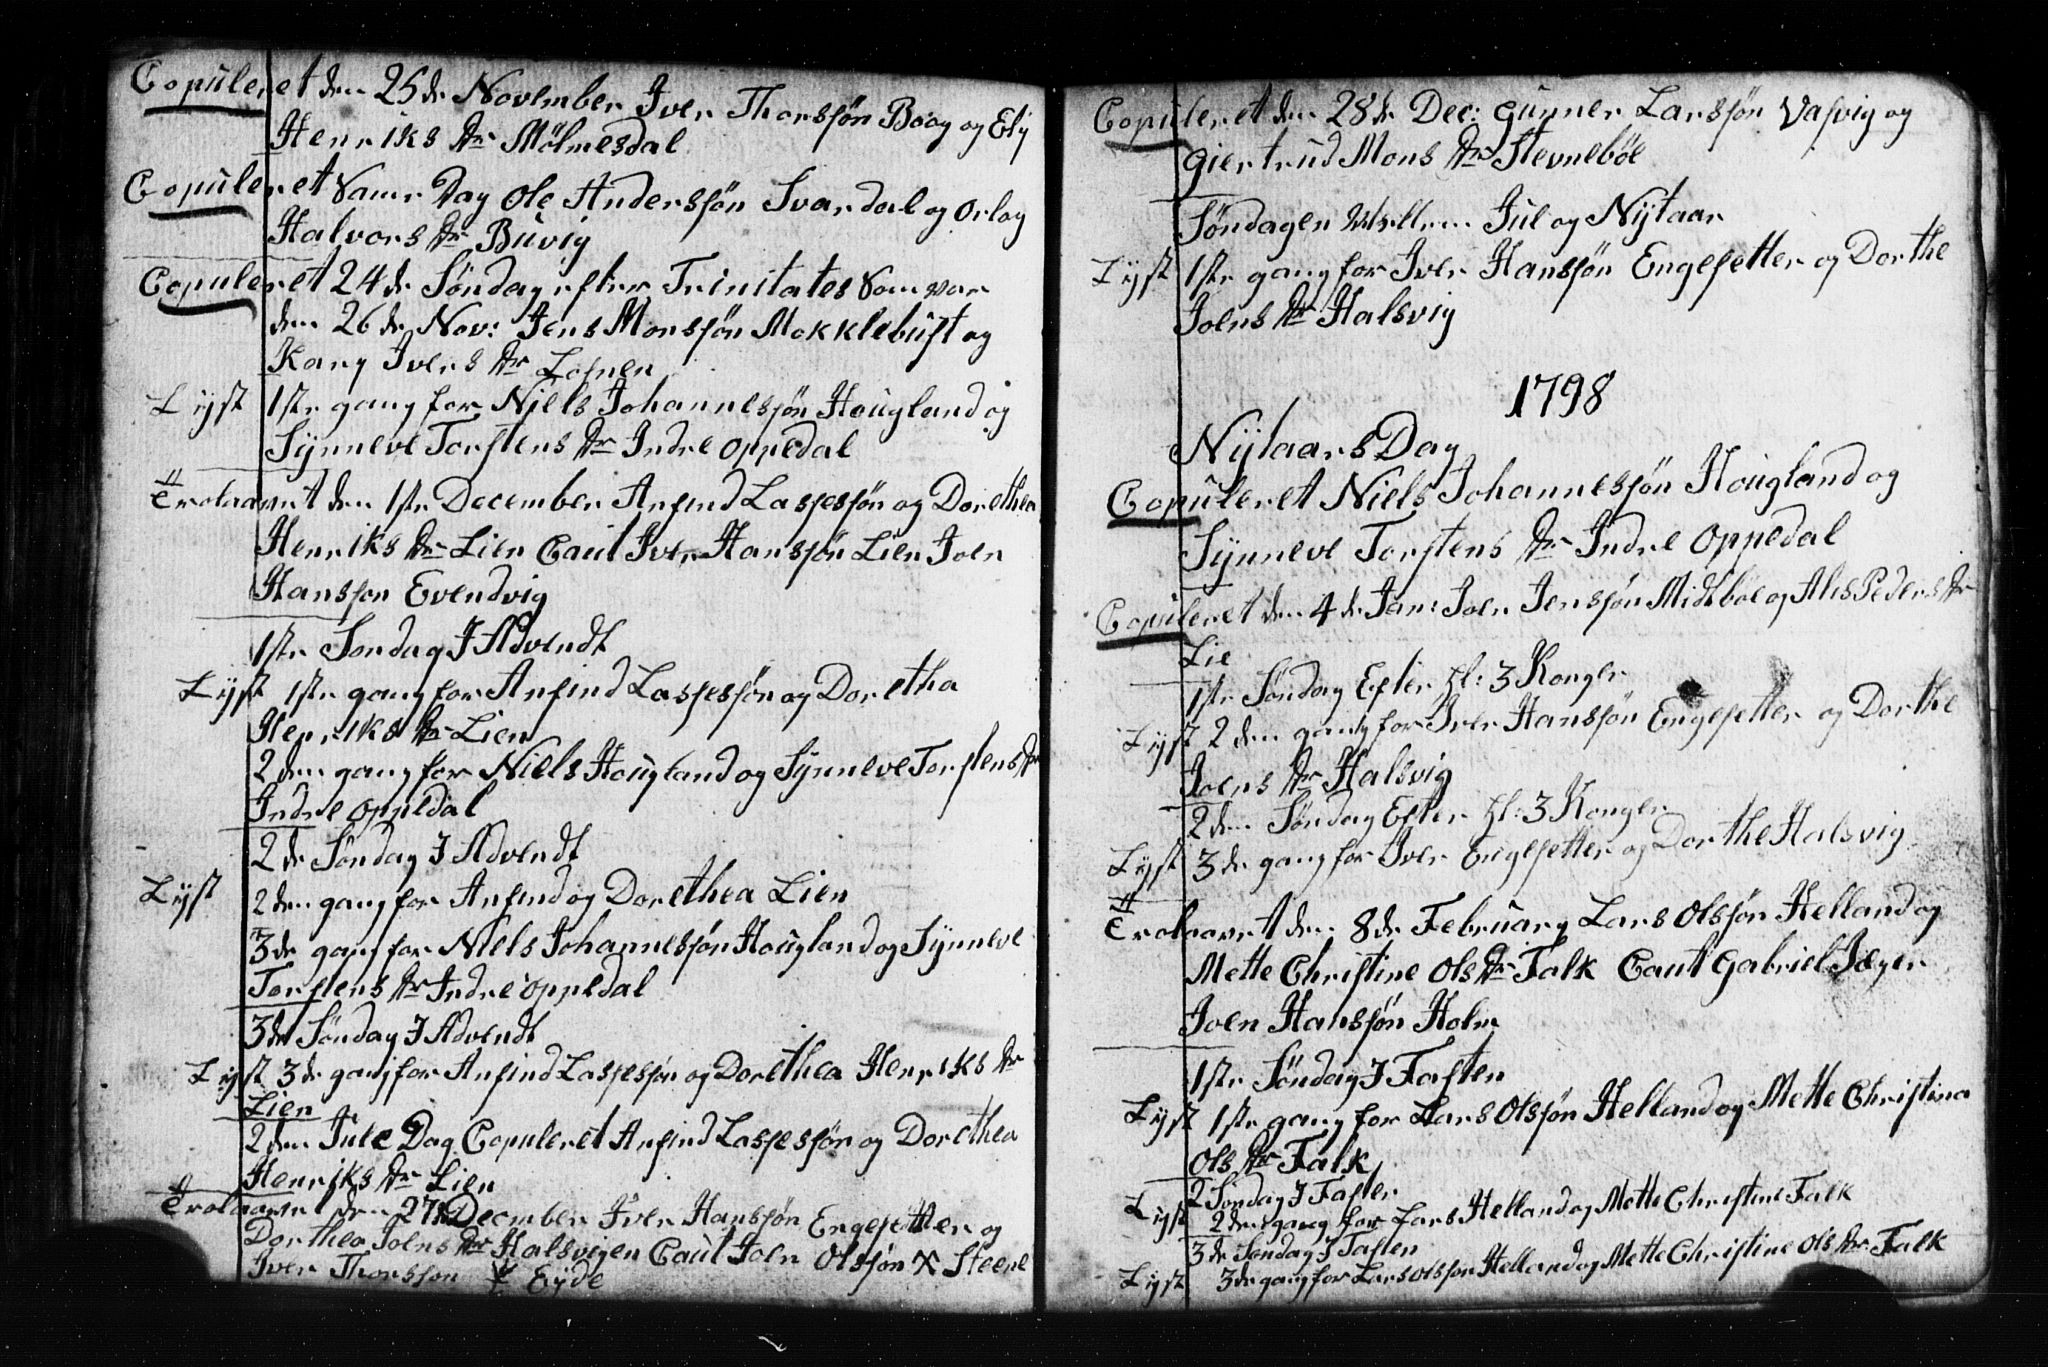 Copuleret den 25de November Iver Thorssøn Boog og Ely
Henriks Dr Mölmesdal
Copuleret Same Dag Ole Anderssøn Svardal og Orlog
Halvors Dr Buvig
Copuleret 24de Søndag efter Trinitates Som var
den 26de Nov: Jens Monssøn Mokklebust og
Kary Ivers Dr
Lyst 1ste gang for Niels Johannessøn Hougland og
Synneve Torstens Dr Indre Oppedal
Trolaavet den 1ste December Anfind Lassessøn og Dorethea
Henriks Dr Lien Caut Iver Hanssøn Lien Joen
Hansson Evendvig
1ste Søndag I Advendt
Lyst 1ste gang for Anfind Lassessøn og Doretha
Henriks Dr Lien
2den gang for Niels Hougland og Synneve Torstens Dr
Indre Oppedal
2de Søndag I Advendt
Lyst 2den gang for Anfind og Dorethea Lien
3de gang for Niels Johannessøn Hougland og Synneve
Torstens Dr Indre Oppedal
3de Søndag I Advendt
Lyst 3de gang for Anfind Lassessøn og Dorethea Henriks Dr
Lien
2den Jule Dag Copuleret Anfind Lassessøn og Dorethea
Henriks Dr Lien
Trolaavet den 27de December Iver Hanssøn Engesetter og
Dorthea Joens Dr Halsvigen Caut Joen Olssøn X Steene
Iver Thorsson Eyde
Copuleret den 28de Dec: Gunner Larssøn Vasvig og
Giertrud Mons Dr Stevnebøe
Søndagen Mellem Jul og Nytaar
Lyst 1ste gang for Iver Hanssøn Engesetter og Dorthe
Joens Dr Halsvig
1798
Nytaars Dag
Copuleret Niels Johannessøn Hougland og
Synneve Torstens Dr Indre Oppedal
Copuleret den 4de Jan: Joen Jenssøn Midtbøe og Alis Peders Dr
Lie
1ste Søndag Efter Hl: 3 Konger
Lyst 2den gang for Iver Hanssøn Engesetter og Dorthe
Joens Dr Halsvig
2den Søndag Efter Hl: 3 Konger
Lyst 3de gang for Iver Engesetter og Dorthe Halsvig
Trolaavet den 8de February Lars Olssøn Helland og
Mette Christine Ols Dr Falk Caut Gabriel Jæger
Joen Hanssøn Holm
1ste Søndag I Fasten
Lyst 1ste gang for Lars Olssøn Helland og Mette Christina
Ols Dr Falk
2 Søndag I Fasten
Lyst 2den gang for Lars Helland og Mette Christine Falk
3de Søndag I Fasten
Lyst 3de gang for Lars Olsson Helland og Mette Christine Ols Dr Falk